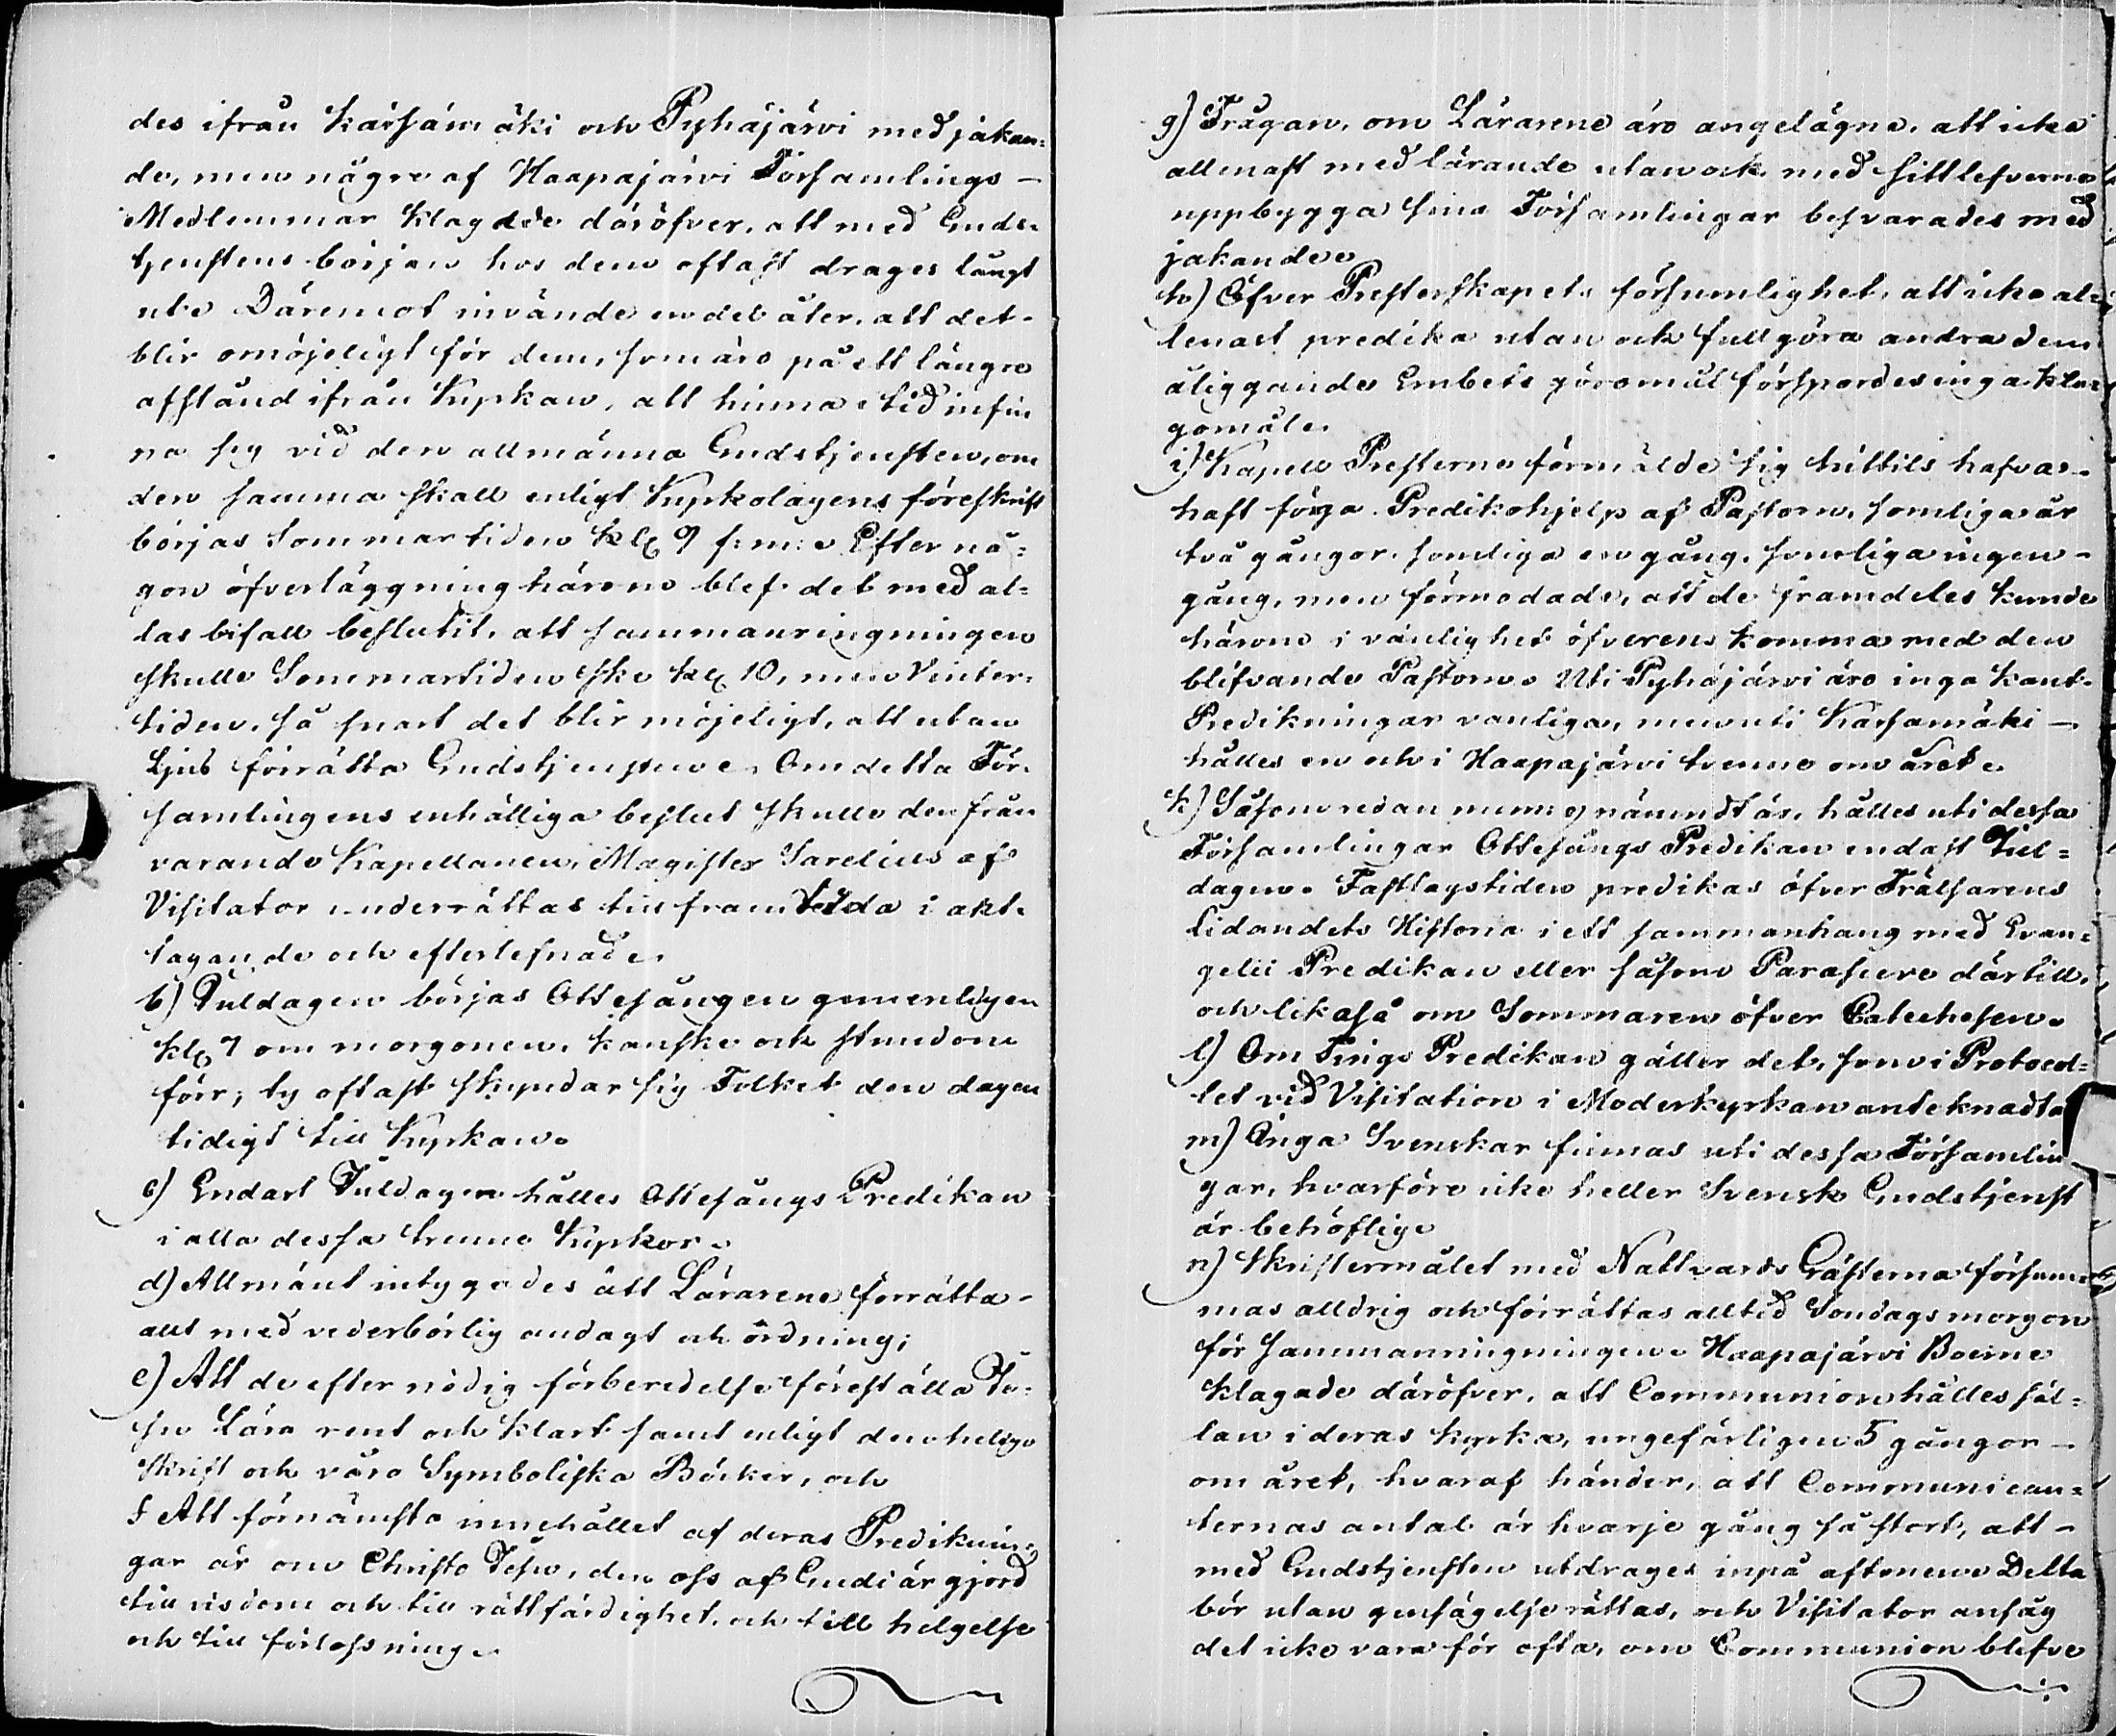 des ifrån Kärsämäki och Pyhäjärvi med jakan=
de, men någre af Haapajärvi Församlings –
Medlemmar klagade däröfver, att med Guds=
tjenstens början hos dem oftast drages långt
ut. Däremot invände en del åter, att det
blir omöjeligt för dem, som äro på ett längre
afstånd ifrån Kyrkan, att hinna i tid infin
na sig vid den allmänna Gudstjensten, om
den samma skall enligt Kyrkolagens föreskrift
börjas Sommartiden kl. 9 f: m: Efter nå=
gon öfverläggning härom blef det med al=
las bifall beslutit, att sammanringningen
skulle Sommartiden ske kl. 10, men Vinter=
tiden, så snart det blir möjeligt, att utan
Ljus förrätta Gudstjensten. Om detta För=
samlingens enhälliga beslut skulle den från
varande Kapellanen, Magister Sarelius af
Visitator underrättas till framtida i akt=
tagande och efterlefnad.
b) Juldagen börjas Ottesången gemenligen
kl. 7 om morgonen, kanske ock stundom
förr; ty oftast skyndar sig Folket den dagen
tidigt till Kyrkan.
c) Endast Juldagen hålles Ottesångs Predikan
i alla dessa trenne Kyrkor.
d) Allmänt intygades att Lärarene förrätta –
allt med vederbörlig andagt och ordning;
e) Att de efter nödig förberedelse föreställa Je=
su Lära rent och klart samt enligt den heliga
Skrift och våra Symboliska Böcker, och
f Att förnämsta innehållet af deras Prediknin=
gar är om Christo Jesu, den oss af Gudi är gjord
till visdom och till rättfärdighet, och till helgelse
och till förlossning.
g) Frågan, om Lärarene äro angelägne, att icke
allenast med lärande utan ock med sitt lefverne
uppbygga sina Församlingar besvarades med
jakande.
h) Öfver Presterskapets försumlighet, att icke al=
lenast predika utan ock fullgöra andra dem
åliggande Embets göromål förspordes inga kla=
gomål.
i) Kapell Presterne förmälde sig hittils hafva
haft föga Predikohjelp af Pastorn, somliga år
två gångor, somliga en gång, somliga ingen –
gång, men förmodade, att de framdeles kunde
härom i vänlighet öfverens komma med den
blifvande Pastorn. Uti Pyhäjärvi äro inga
Predikningar vanliga, men uti Kärsämäki –
hålles en och i Haapajärvi trenne om året.
k) Såsom redan nämndt är, hålles uti dessa
Församlingar Ottesångs Predikan endast Jul=
dagen. Fastlagstiden predikas öfver Frälsarens
Lidandets Historia i ett sammanhang med Evan=
gelii Predikan eller såsom därtill,
och likaså om Sommaren öfver Catechesen.
l) Om Tings Predikan gäller det, som i Protocol=
let vid Visitation i Moderkyrkan antecknadt
m) Inga Svenskar finnas uti dessa Församlin
gar, hvarföre icke heller Svensk Gudstjenst
är behöflig.
n) Skriftermålet med Nattvards Gästerna försum=
mas alldrig och förrättas alltid Söndags morgon
för Sammanringningen. Haapajärvi Boerne
klagade däröfver, att Communion hålles säl=
lan i deras kyrka, ungefärligen 5 gångor –
om året, hvaraf händer, att Communican=
ternas antal är hvarje gång så stort, att –
med Gudstjensten utdrages inpå aftonen. Detta
bör utan gensägelse rättas, och Visitator ansåg
det icke vara för ofta, om Communion blefve